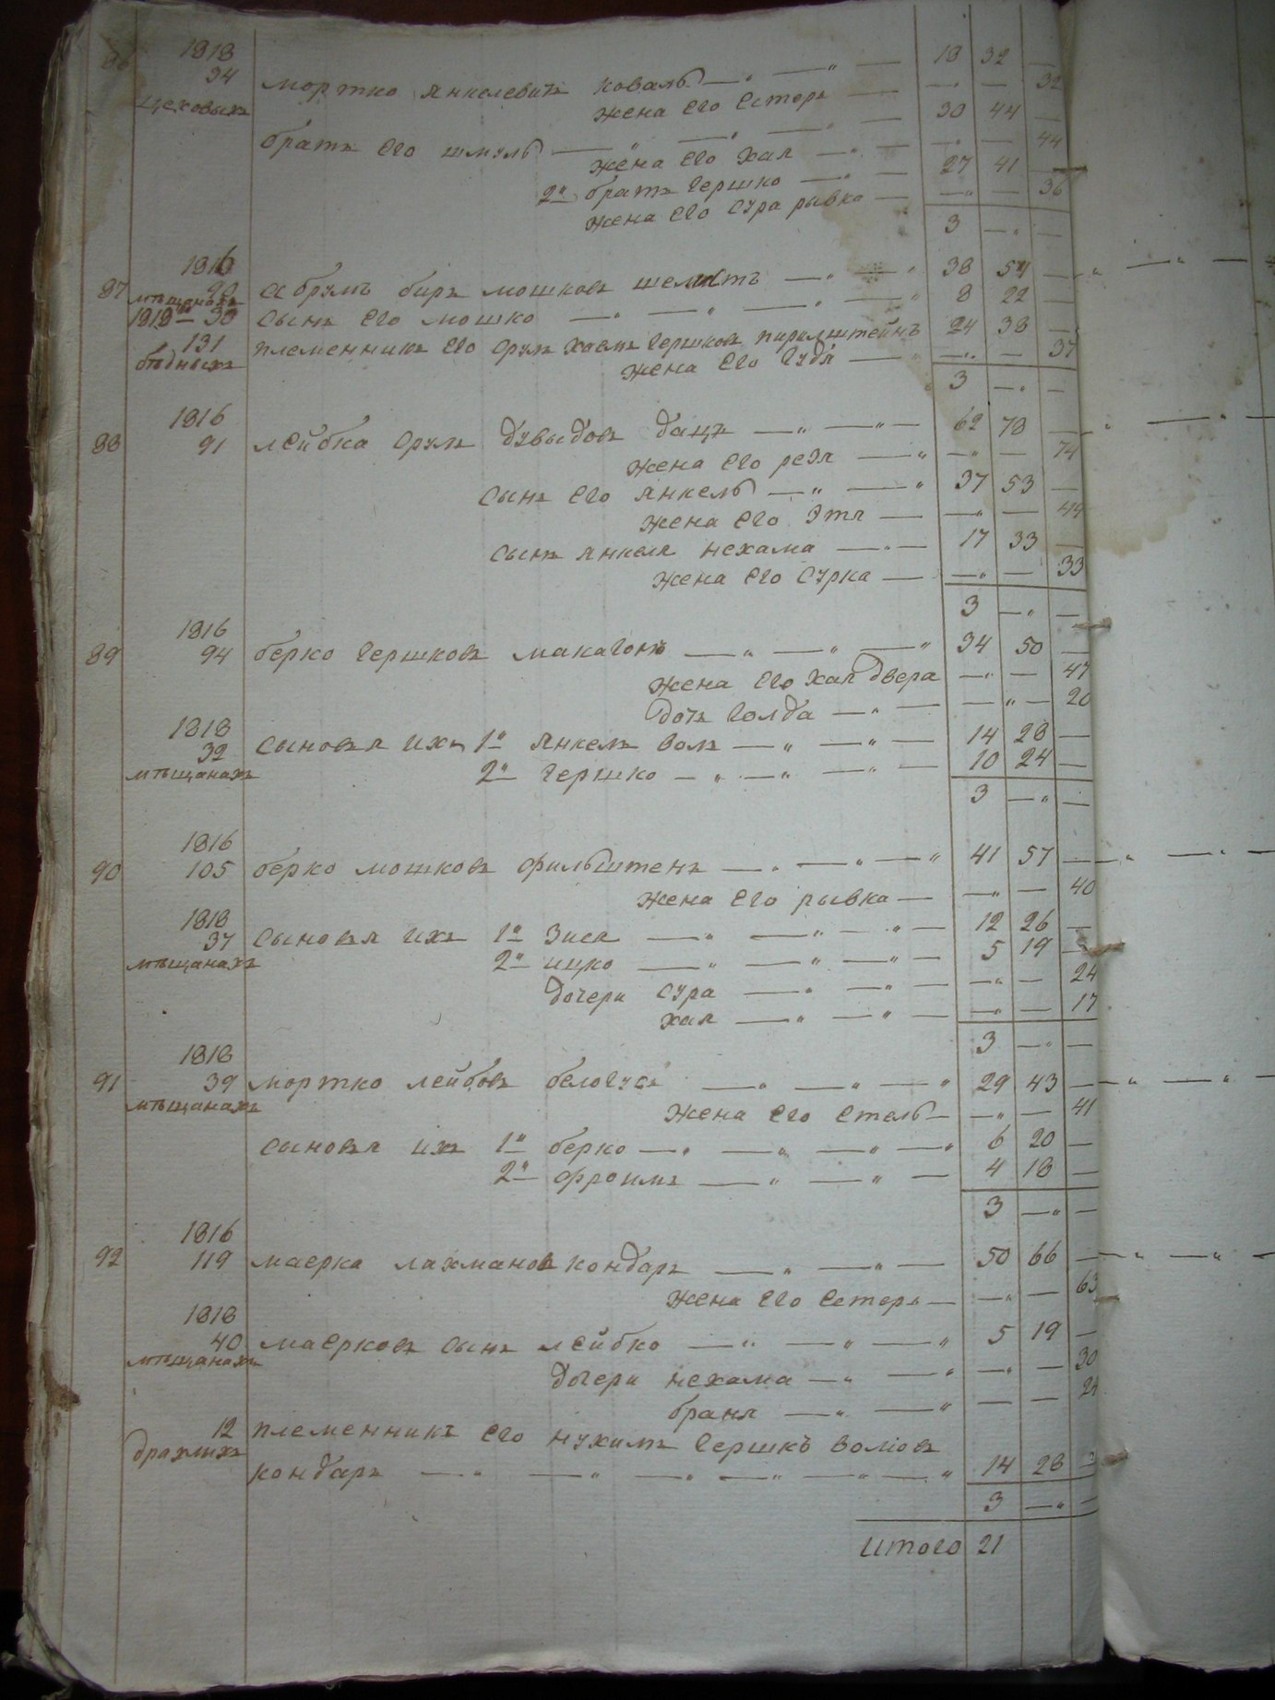 86 1818 34 Мортко Янкелевичъ коваль — „ — „ — 18 32 —
цеховыхъ жена его Естеръ — — „ — 32
братъ его Шмуль — „ — „ — „ — 30 44 —
жена его Хая — „ — — „ — 44
2й братъ Гершко — „ — 27 41 —
жена его Сура рывка — — „ — 36
3 — „ —
1816
87 90 Абрумъ биръ Мошковъ — „ — „ 38 54 —
мѣщанахъ
1818 30 сынъ его Мошко — „ — „ — „ — „ 8 22 —
131 племенникъ его Срулъ Хаемъ Гершковъ 24 38 —
бѣдныхъ жена его Гудя — — „ — 37
3 — „ —
1816
88 91 Лейбка Срулъ Дувыдовъ бацъ — „ — „ — 62 78 —
жена его рейзя — „ — „ — 74
сынъ его Янкель — „ — „ 37 53 —
жена его Этя — — „ — 44
сынъ Янкеля Нехама — „ — 17 33 —
жена его Сурка — — „ — 33
3 — „ —
1816
89 94 берко Гершковъ макагонъ — „ — „ — „ 34 50 —
жена его Хая двера — „ — 47
дочъ Голда — „ — — „ — 20
1818
32 сыновья ихъ 1й Янкелъ волъ — „ — „ — 14 28 —
мѣщанахъ 2й Гершко — „ — „ — „ — 10 24 —
3 — „ —
1816
90 105 берко Мошковъ фильштенъ — „ — „ — „ 41 57 —
жена его рывка — — „ — 40
1818
37 сыновья ихъ 1й Зися — „ — „ — „ — 12 26 —
мѣщанахъ 2й ицко — „ — „ — „ — 5 19 —
дочери Сура — „ — „ — — „ — 24
Хая — „ — „ — — „ — 17
3 — „ —
1818
91 39 Мортко Лейбовъ белогусъ — „ — „ — „ 29 43 —
мѣщанахъ жена его Стель — — „ — 41
сыновья ихъ 1й берко — „ — „ — „ — „ 6 20 —
2й Фроимъ — „ — „ — 4 18 —
3 — „ —
1816
92 119 Маерка Лахмановъ кондаръ — „ — „ — 50 66 —
жена его Естеръ — — „ — 63
1818
40 Маерковъ сынъ Лейбко — „ — „ — „ 5 19 —
мѣщанахъ дочери Нехама — „ — „ — „ — 30
браня — „ — „ — — 24
12 племенникъ его Нухимъ Гершкъ Волiовъ
дряхлыхъ кондаръ — „ — „ — „ — „ — „ — „ 14 28 —
3 — „ —
Итого 21